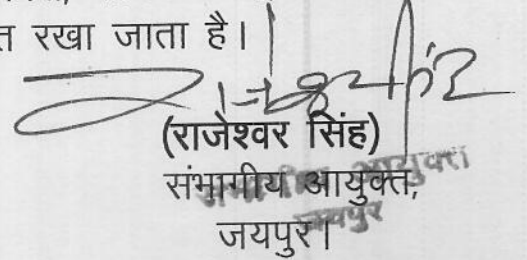 त रखा जाता है।
(राजेश्वर सिंह)
संभागीय आयुक्त,
जयपुर।